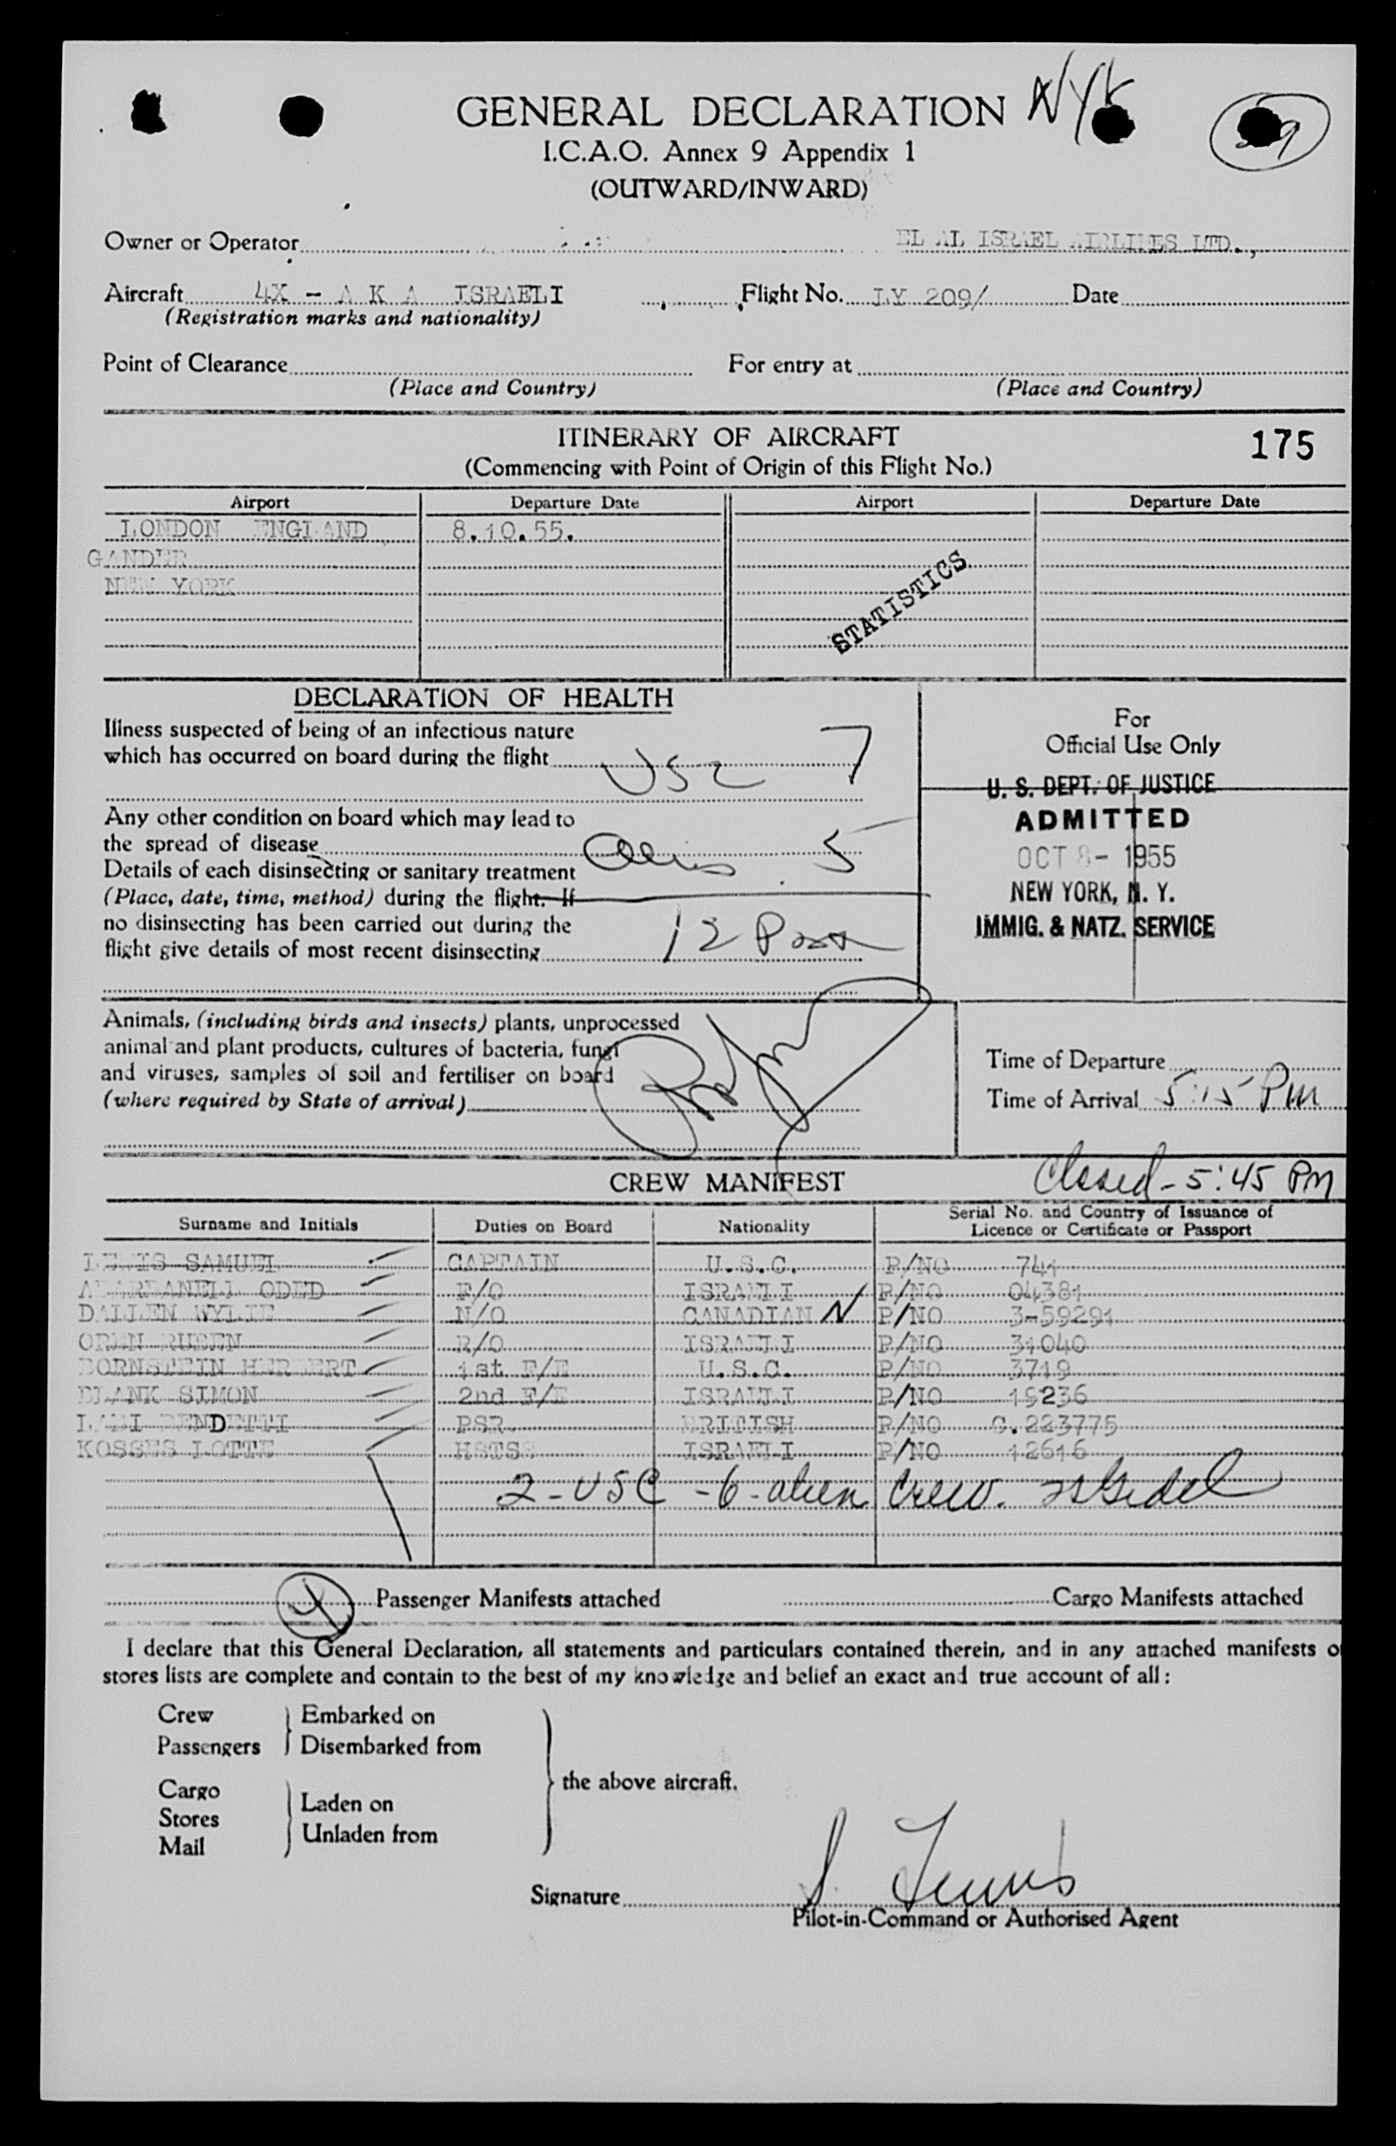 GENERAL DECLARATION NYK
I.C.A.O. Annex 9 Appendix 1
(OUTWARD/INWARD)
Owner or Operator EL AL ISRAEL AIRLINES LTD.,
Aircraft 4X - A K A ISRAELI Flight No. LY 209/ Date
(Registration marks and nationality)
Point of Clearance For entry at
(Place and Country) (Place and Country)
ITINERARY OF AIRCRAFT 175
(Commencing with Point of Origin of this Flight No.)
Airport Departure Date Airport Departure Date
LONDON ENGLAND 8.10.55.
GANDER
NEW YORK
STATISTICS
DECLARATION OF HEALTH
Illness suspected of being of an infectious nature
which has occurred on board during the flight USC 7
Any other condition on board which may lead to
the spread of disease Aliens 5
Details of each disinsecting or sanitary treatment
(Place, date, time, method) during the flight. If
no disinsecting has been carried out during the
flight give details of most recent disinsecting 12 Pass
For
Official Use Only
U. S. DEPT. OF JUSTICE
ADMITTED
OCT 8 - 1955
NEW YORK, N. Y.
IMMIG. & NATZ. SERVICE
Animals, (including birds and insects) plants, unprocessed
animal and plant products, cultures of bacteria, fungi
and viruses, samples of soil and fertiliser on board
(where required by State of arrival)
Time of Departure
Time of Arrival 5:15 PM
CREW MANIFEST Closed - 5:45 PM
Surname and Initials Duties on Board Nationality Serial No. and Country of Issuance of
Licence or Certificate or Passport
LEWIS SAMUEL CAPTAIN U.S.C. P/NO 741
ABARBANELL ODED F/O ISRAELI P/NO 04381
DALLEN WYLIE N/O CANADIAN N P/NO 3-59291
OREN RUBEN R/O ISRAELI P/NO 31040
BORNSTEIN HERBERT 1st F/E U.S.C. P/NO 3719
BLANK SIMON 2nd F/E ISRAELI P/NO 19236
PSR BRITISH P/NO C.223775
KOSSES LOTTE HSTSS ISRAELI P/NO 12616
2 - USC - 6 - alien Crew.
4 Passenger Manifests attached Cargo Manifests attached
I declare that this General Declaration, all statements and particulars contained therein, and in any attached manifests o
stores lists are complete and contain to the best of my knowledge and belief an exact and true account of all:
Crew Embarked on
Passengers Disembarked from
the above aircraft.
Cargo
Stores Laden on
Mail Unladen from
Signature S. Lewis
Pilot-in-Command or Authorised Agent